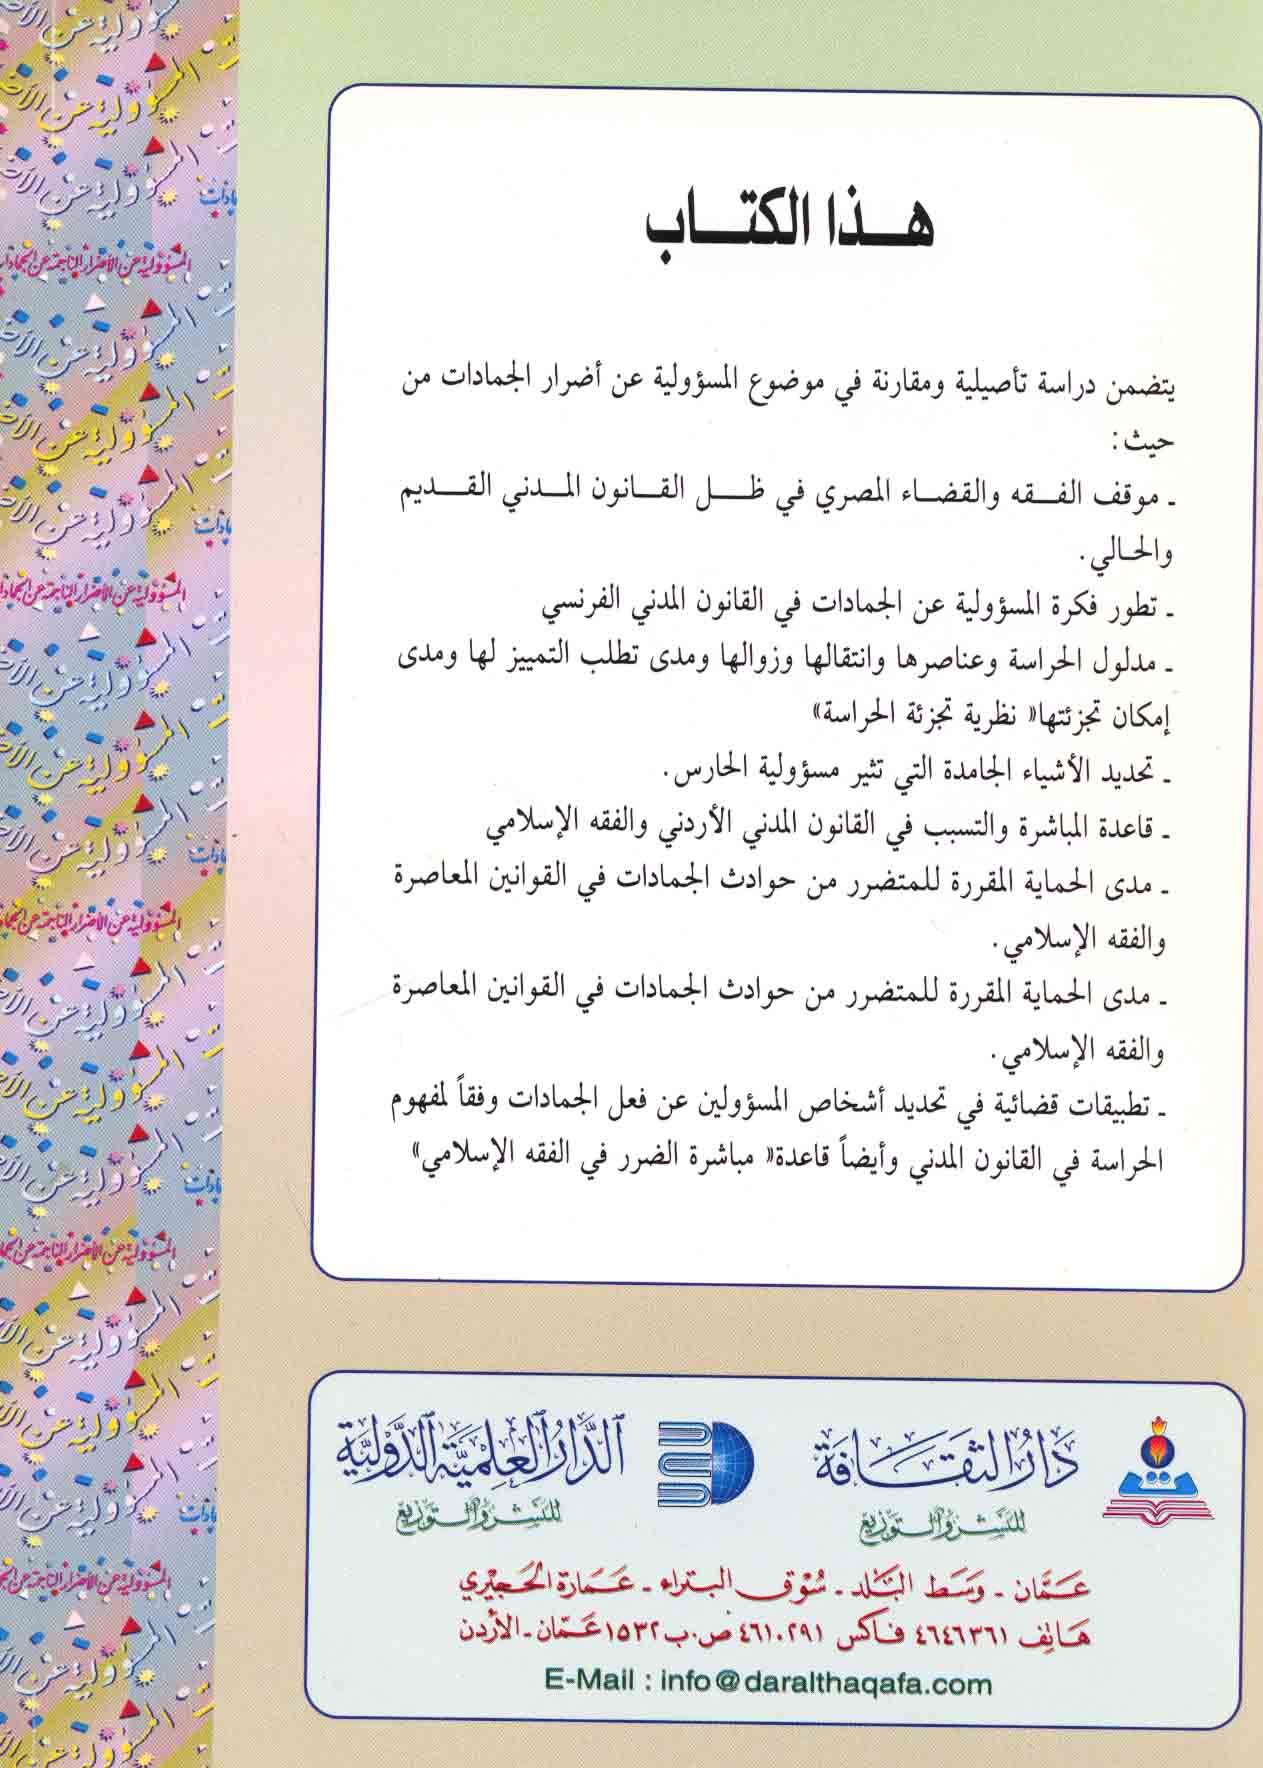 هـذا الكتـاب
يتضمن دراسة تأصيلية ومقارنة في موضوع المسؤولية عن أضرار الجمادات من
حيث:
ـ موقف الفـقه والقضاء المصري في ظل القانون المدني القديم
والحالي.
ـ تطور فكرة المسؤولية عن الجمادات في القانون المدني الفرنسي
ـ مدلول الحراسة وعناصرها وانتقالها وزوالها ومدى تطلب التمييز لها ومدى
إمكان تجزئتها« نظرية تجزئة الحراسة»
ـ تحديد الأشياء الجامدة التي تثير مسؤولية الحارس.
ـ قاعدة المباشرة والتسبب في القانون المدني الأردني والفقه الإسلامي
ـ مدى الحماية المقررة للمتضرر من حوادث الجمادات في القوانين المعاصرة
والفقه الإسلامي.
ـ مدى الحماية المقررة للمتضرر من حوادث الجمادات في القوانين المعاصرة
والفقه الإسلامي.
ـ تطبيقات قضائية في تحديد أشخاص المسؤولين عن فعل الجمادات وفقاً لمفهوم
الحراسة في القانون المدني وأيضاً قاعدة« مباشرة الضرر في الفقه الإسلامي»
دار الثقافة
للنشر والتوزيع
الدار العلمية الدولية
للنشر والتوزيع
عمّان ـ وسط البلد ـ سوق البتراء ـ عمارة الحجيري
هاتف ٤٦٤٦٣٦١ فاكس ٤٦١٠٢٩١ ص.ب ١٥٣٢ عمّان ـ الأردن
E-Mail : info@daralthaqafa.com
المسؤولية عن الأضرار الناجمة عن الجمادات